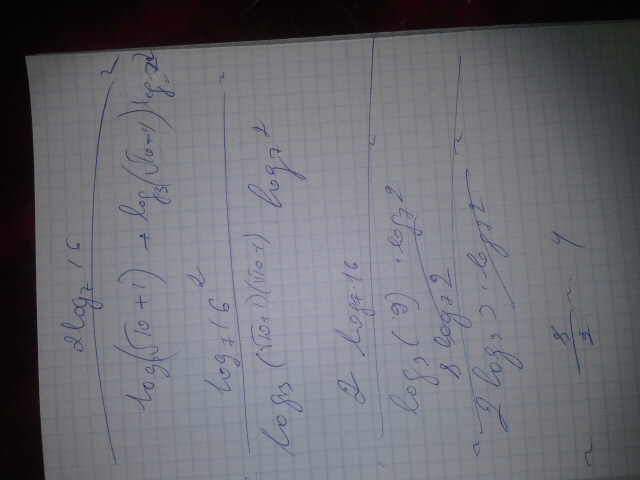 2log₇ 16
log₃(√10+1) + log₃(√10+1) log₇2 =
log₇16² =
log₃(√10+1)(√10-1) log₇2
2 log₇ 16 =
log₃(9) · log₇2
= 8 log₇2 =
2 log₃3 · log₇2
= 8/2 = 4